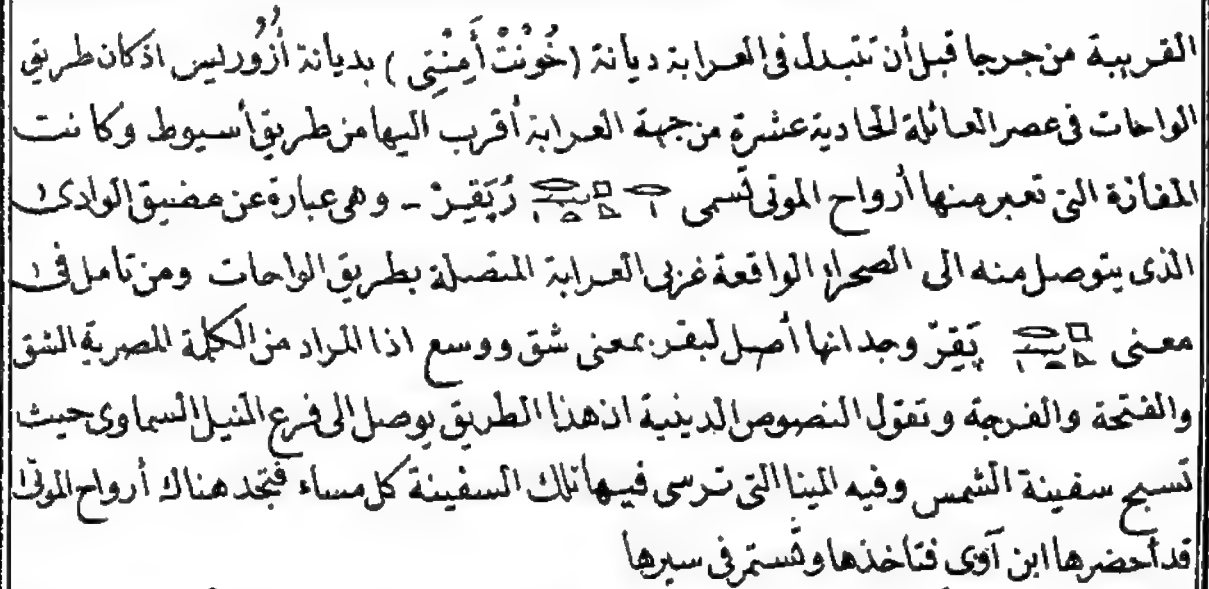 القريبة من جرجا قبل أن تتبدل في العرابة ديانة (خُونْتْ أَمِنْتِي) بديانة أُزُورليس اذ كان طريق
الواحات في عصر العائلة الحادية عشرة من جهة العرابة أقرب اليها من طريق أسيوط وكانت
المفازة التي تعبر منها أرواح الموتى تسمى رُبَقِيرْ - وهي عبارة عن مضيق الوادى
الذى يتوصل منه الى الصحراء الواقعة غربى العرابة المتصلة بطريق الواحات ومن تامل في
معنى پَقِرّ وجدانها أصل لبقر بمعنى شق ووسع اذا المراد من الكلمة المصرية الشق
والفتحة والفرجة وتقول النصوص الدينية ان هذا الطريق يوصل الى فرع النيل السماوى حيث
تسبح سفينة الشمس وفيه المينا التى ترسى فيها تلك السفينة كل مساء فتجد هناك أرواح الموتى
قد أحضرها ابن آوى فتاخذها وتستمر في سيرها